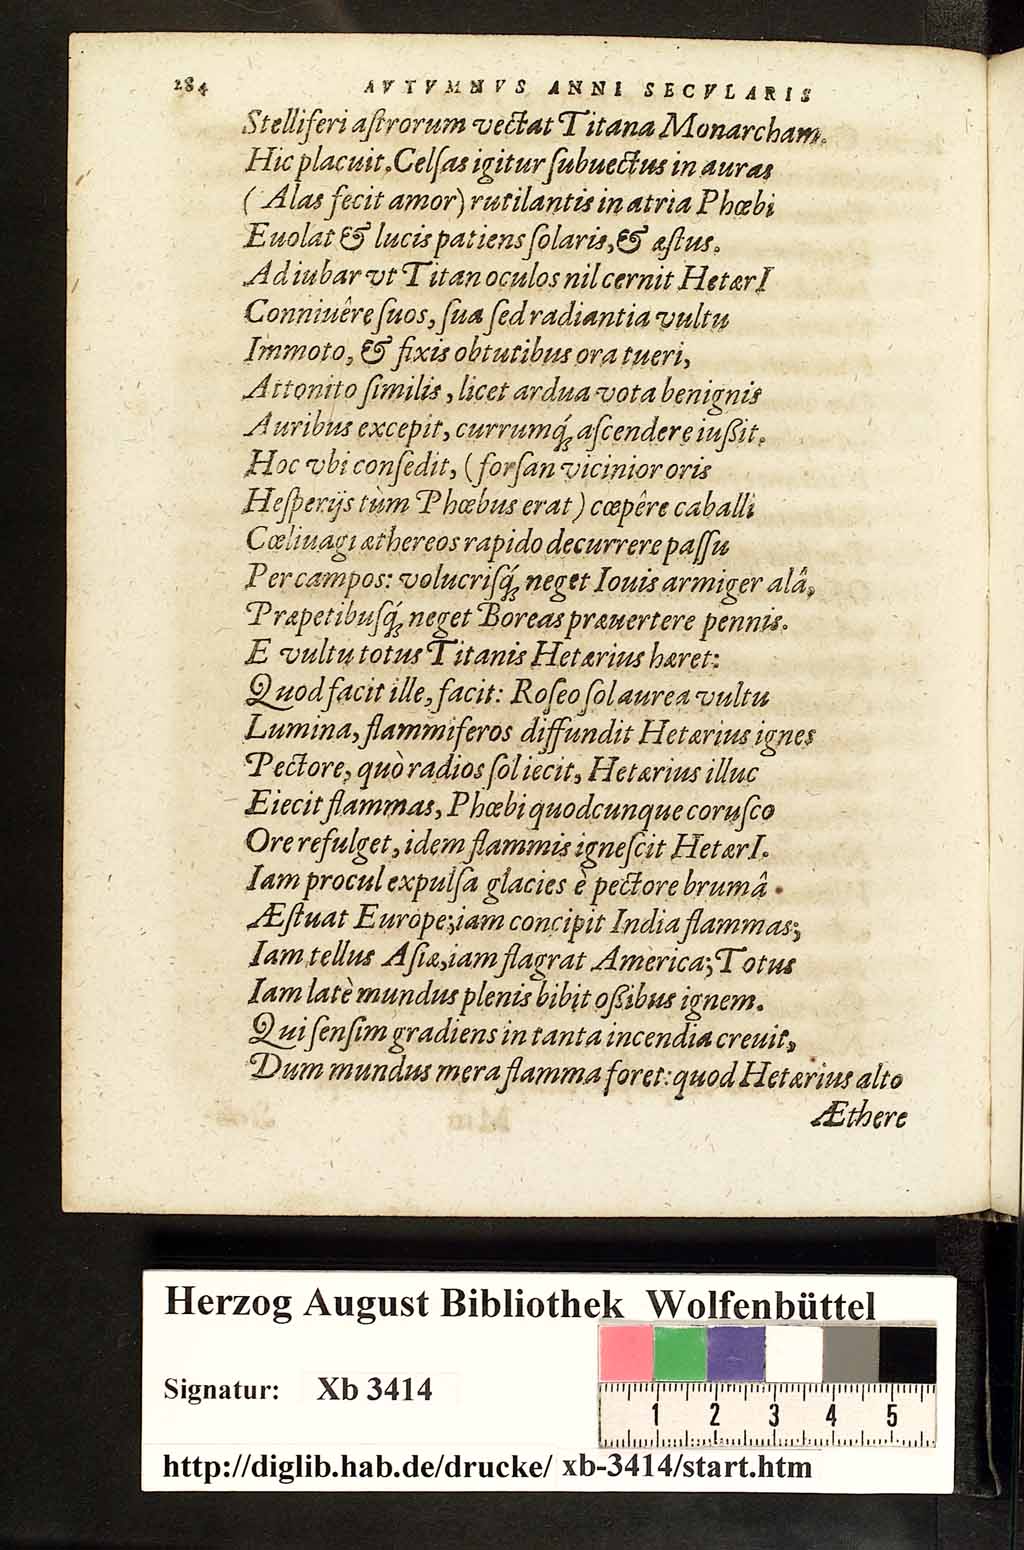 284 AVTVMNVS ANNI SECVLARIS
Stelliferi aſtrorum vectat Titana Monarcham.
Hic placuit. Celſas igitur ſubuectus in auras
(Alas fecit amor) rutilantis in atria Phœbi
Euolat & lucis patiens ſolaris, & æſtus.
Ad iubar vt Titan oculos nil cernit HetærI
Conniuêre ſuos, ſua ſed radiantia vultu
Immoto, & fixis obtutibus ora tueri,
Attonito ſimilis, licet ardua vota benignis
Auribus excepit, currumq́; aſcendere iußit.
Hoc vbi conſedit, (forſan vicinior oris
Heſperijs tùm Phœbus erat) cœpêre caballi
Cœliuagi æthereos rapido decurrere paſſu
Per campos: volucriſq́; neget Iouis armiger alâ,
Præpetibuſq́; neget Boreas præuertere pennis.
E vultu totus Titanis Hetærius hæret:
Quod facit ille, facit: Roſeo ſol aurea vultu
Lumina, flammiferos diffundit Hetærius ignes
Pectore, quò radios ſol iecit, Hetærius illuc
Eiecit flammas, Phœbi quodcunque coruſco
Ore refulget, idem flammis igneſcit HetærI.
Iam procul expulſa glacies è pectore brumâ
Æſtuat Europe; iam concipit India flammas;
Iam tellus Aſiæ, iam flagrat America; Totus
Iam latè mundus plenis bibit oßibus ignem.
Qui ſenſim gradiens in tanta incendia creuit,
Dum mundus mera flamma foret: quod Hetærius alto
Æthere
Herzog August Bibliothek Wolfenbüttel
Signatur: Xb 3414
1 2 3 4 5
http://diglib.hab.de/drucke/ xb-3414/start.htm